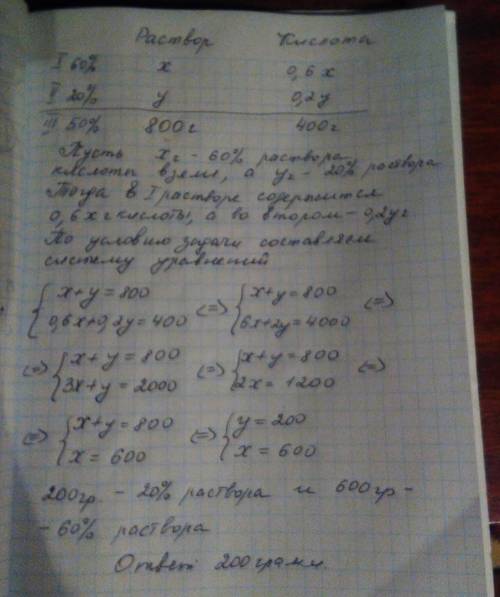 Раствор Кислота
I 60% x 0,6x
II 20% y 0,2y
III 50% 800г 400г
Пусть x г - 60% раствора
кислоты взяли, а y г - 20% раствора
Тогда в I растворе содержится
0,6x г кислоты, а во втором - 0,2y г
По условию задачи составляем
систему уравнений
{x+y=800 0,6x+0,2y=400 <=> {x+y=800 6x+2y=4000 <=>
<=> {x+y=800 3x+y=2000 <=> {x+y=800 2x=1200 <=>
<=> {x+y=800 x=600 <=> {y=200 x=600
200гр. - 20% раствора и 600гр -
- 60% раствора
Ответ 200грамм.